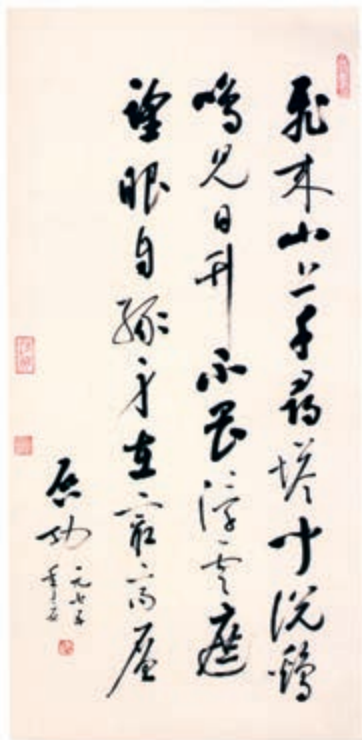 飛来山上千尋塔聞説鷄
鳴見日升不畏浮雲遮
望眼自緣身在最高層
啓功
一九七五
年